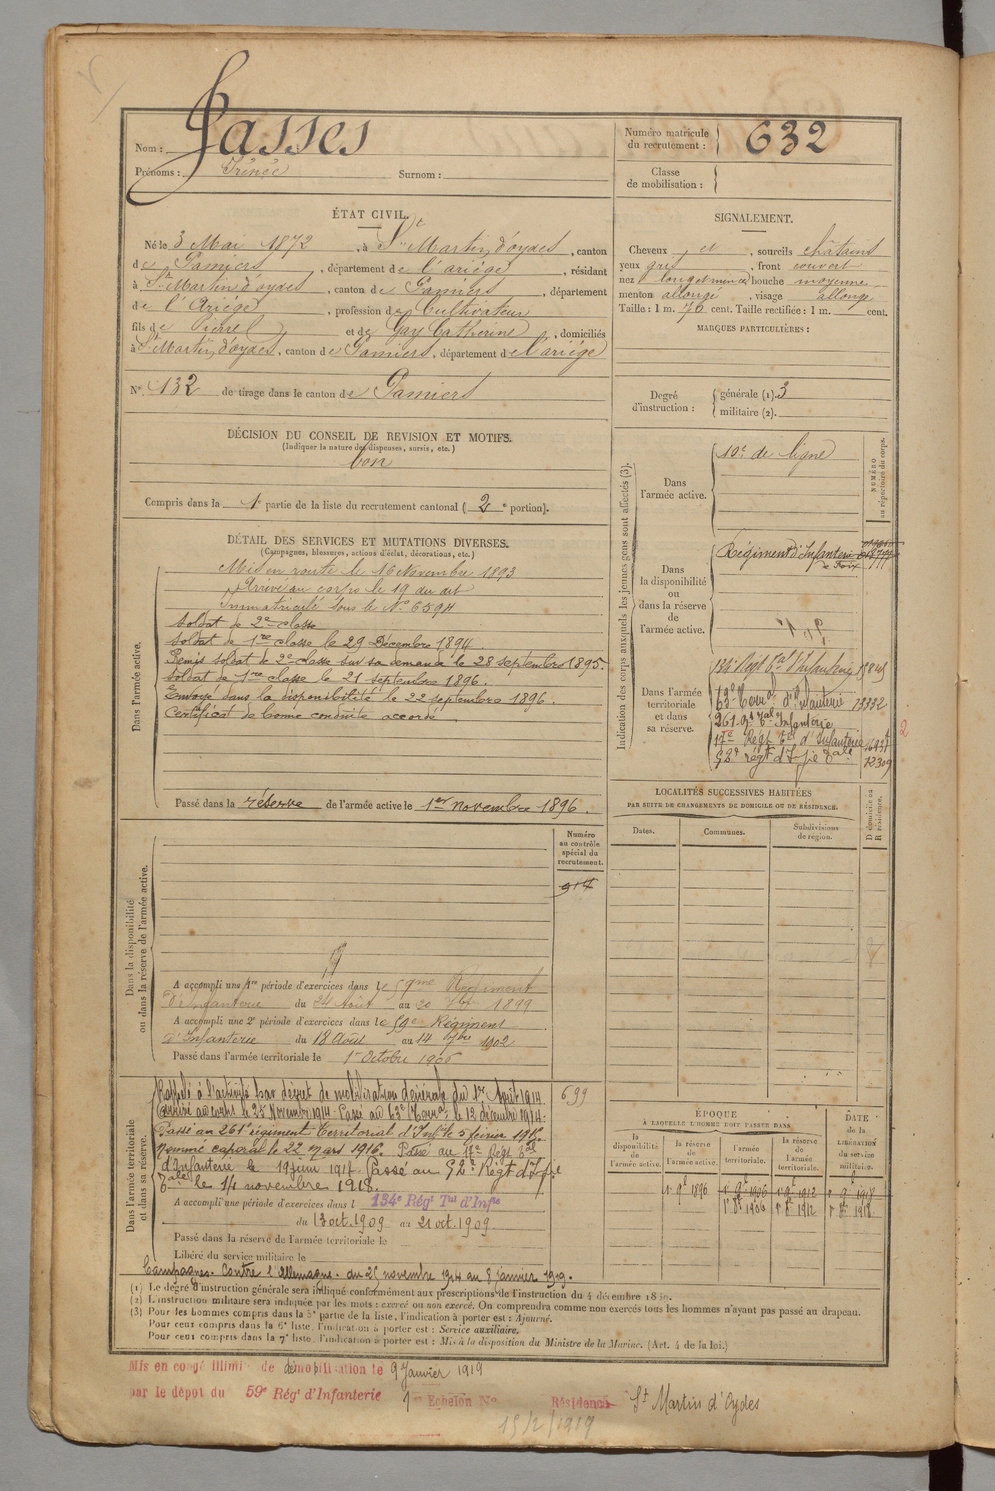 Nom : Passes
Prénoms : Irénée Surnom :
Numéro matricule du recrutement : 632
Classe de mobilisation :
ÉTAT CIVIL.
Né le 3 Mai 1872, à St Martin d'oydes, canton
de Pamiers, département de l'ariége, résidant
à St Martin d'oydes, canton de Pamiers, département
de l'Ariége, profession de Cultivateur
fils de Pierre et de Gay Catherine, domiciliés
à St Martin d'oydes, canton de Pamiers, département de l'ariége
N° 132 de tirage dans le canton de Pamiers
SIGNALEMENT.
Cheveux et sourcils châtains
yeux gris, front couvert
nez bouche moyenne
menton allongé, visage allongé
Taille : 1 m. 70 cent. Taille rectifiée : 1 m. cent.
MARQUES PARTICULIÈRES :
Degré d'instruction : générale (1). 3
militaire (2).
DÉCISION DU CONSEIL DE REVISION ET MOTIFS.
(Indiquer la nature des dispenses, sursis, etc.)
bon
Compris dans la 1e partie de la liste du recrutement cantonal ( 2 e portion).
DÉTAIL DES SERVICES ET MUTATIONS DIVERSES.
(Campagnes, blessures, actions d'éclat, décorations, etc.)
Dans l'armée active.
Mis en route le 16 Novembre 1893
Arrivé au corps le 19 du dit
Immatriculé sous le N° 6594
Soldat de 2e classe
Soldat de 1re classe le 29 Décembre 1894
Remis soldat de 2e classe sur sa demande le 28 septembre 1895.
Soldat de 1re classe le 21 septembre 1896.
Envoyé dans la disponibilité le 22 septembre 1896.
Certificat de bonne conduite accordé
Passé dans la réserve de l'armée active le 1er novembre 1896.
Indication des corps auxquels les jeunes gens sont affectés (3).
NUMÉRO au répertoire du corps.
Dans l'armée active.
10e de ligne
Dans la disponibilité ou dans la réserve de l'armée active.
Régiment d'Infanterie
de Foix
Dans l'armée territoriale et dans sa réserve.
134e Régt Tal d'Infanterie
63e Terral d'Infanterie 13332
261e Rt Tal Infanterie
17e Régt Tal d'Infanterie
52e régt d'Infie Tale 12309
2
LOCALITÉS SUCCESSIVES HABITÉES
PAR SUITE DE CHANGEMENTS DE DOMICILE OU DE RÉSIDENCE.
Dates.
Communes.
Subdivisions de région.
D domicile ou R résidence.
Dans la disponibilité ou dans la réserve de l'armée active.
Numéro au contrôle spécial du recrutement.
914
A accompli une 1re période d'exercices dans le 59me Régiment
d'Infanterie du 24 Août au 20 7bre 1899
A accompli une 2e période d'exercices dans le 59e Régiment
d'Infanterie du 18 Août au 14 7bre 1902
Passé dans l'armée territoriale le 1er Octobre 1906
Dans l'armée territoriale et dans sa réserve.
Rappelé à l'activité par décret de mobilisation générale du 1er Août 1914
699
Arrivé au corps le 25 Novembre 1914. Passé au 63e Terral le 12 décembre 1914.
Passé au 261e régiment territorial d'Infrie le 5 février 1915.
Nommé caporal le 22 mars 1916. Passé au 17e Régt Tal
d'Infanterie le 19 juin 1917. Passé au 52e Régt d'Infie
Tale le 14 novembre 1918.
A accompli une période d'exercices dans le 134e Régt Tal d'Infie
du 13 oct. 1909 au 21 oct. 1909
Passé dans la réserve de l'armée territoriale le
Libéré du service militaire le
Campagnes. Contre l'Allemagne. du 25 novembre 1914 au 8 janvier 1919.
ÉPOQUE
À LAQUELLE L'HOMME DOIT PASSER DANS
la disponibilité de l'armée active.
la réserve de l'armée active.
l'armée territoriale.
la réserve de l'armée territoriale.
DATE de la LIBÉRATION du service militaire.
1er 9bre 1896
1er 9bre 1906
1er 9bre 1912
1er 9bre 1918
1er 8bre 1906
1er 8bre 1912
1er 8bre 1918
(1) Le degré d'instruction générale sera indiqué conformément aux prescriptions de l'instruction du 4 décembre 1889.
(2) L'instruction militaire sera indiquée par les mots : exercé ou non exercé. On comprendra comme non exercés tous les hommes n'ayant pas passé au drapeau.
(3) Pour les hommes compris dans la 5e partie de la liste, l'indication à porter est : Ajourné.
Pour ceux compris dans la 6e liste, l'indication à porter est : Service auxiliaire.
Pour ceux compris dans la 7e liste, l'indication à porter est : Mis à la disposition du Ministre de la Marine. (Art. 4 de la loi.)
Mis en congé illimité de démobilisation le 9 Janvier 1919
par le dépot du 59e Régt d'Infanterie 1er Echelon No Résidence St Martin d'Oydes
15/2/1919